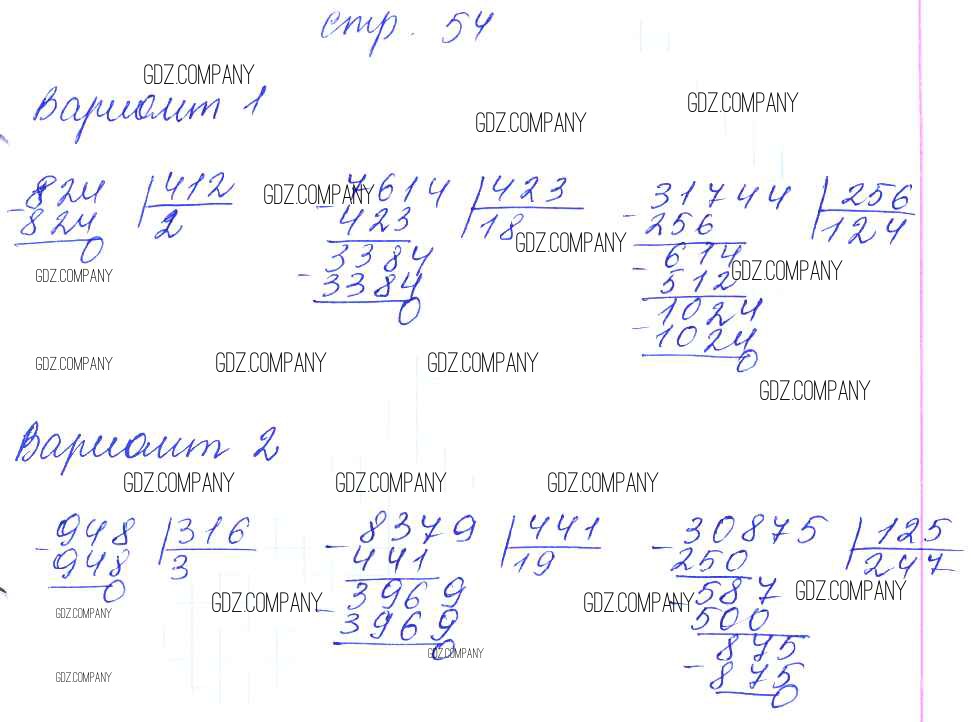 стр. 54
GDZ.COMPANY
Вариант 1
GDZ.COMPANY
GDZ.COMPANY
824 | 412
- 824 | 2
0
GDZ.COMPANY
7614 | 423
- 423 | 18
3384
- 3384
0
GDZ.COMPANY
GDZ.COMPANY
31744 | 256
- 256 | 124
- 614
512
1024
- 1024
0
GDZ.COMPANY
GDZ.COMPANY
GDZ.COMPANY
GDZ.COMPANY
GDZ.COMPANY
Вариант 2
GDZ.COMPANY
GDZ.COMPANY
GDZ.COMPANY
- 948 | 316
948 | 3
0
GDZ.COMPANY
- 8379 | 441
441 | 19
- 3969
3969
0
GDZ.COMPANY
GDZ.COMPANY
- 30875 | 125
250 | 247
- 587
500
875
- 875
0
GDZ.COMPANY
GDZ.COMPANY
GDZ.COMPANY
GDZ.COMPANY